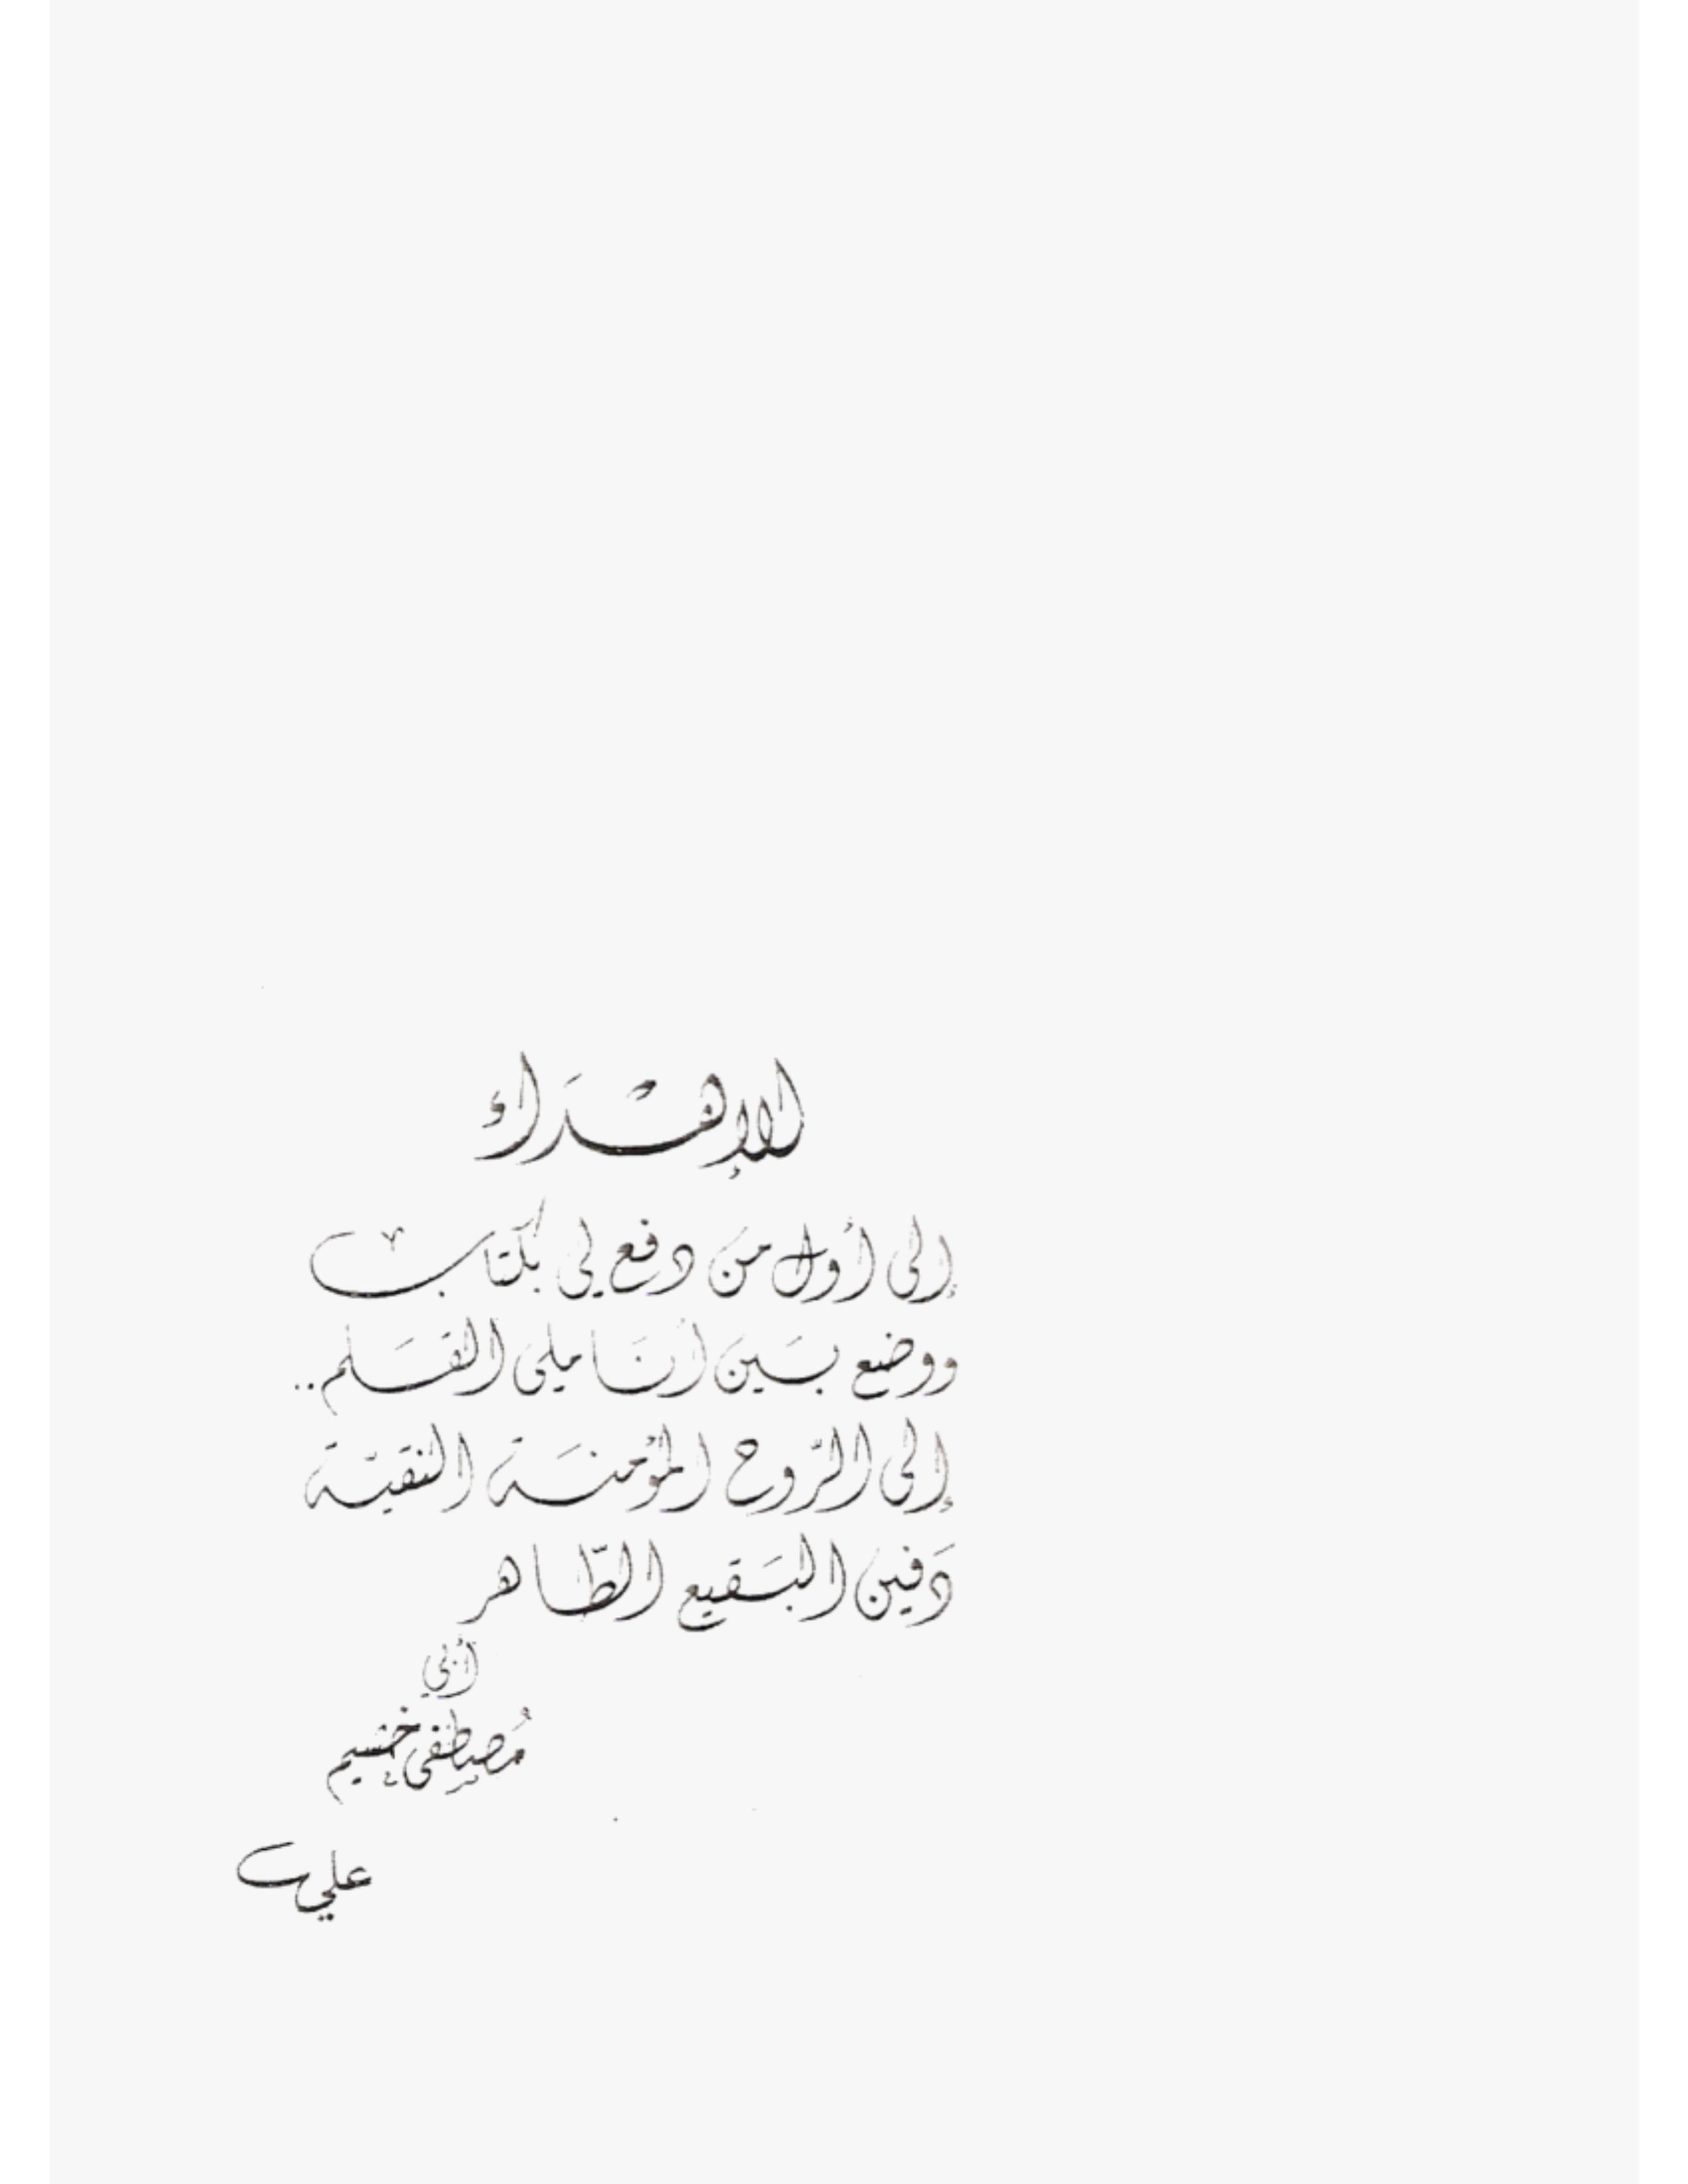 الإهداء
إلى أول من دفع لي بكتاب
ووضع بين أناملي القلم..
إلى الروح المؤمنة النقية
دفين البقيع الطاهر
أبي
مصطفى خشيم
علي